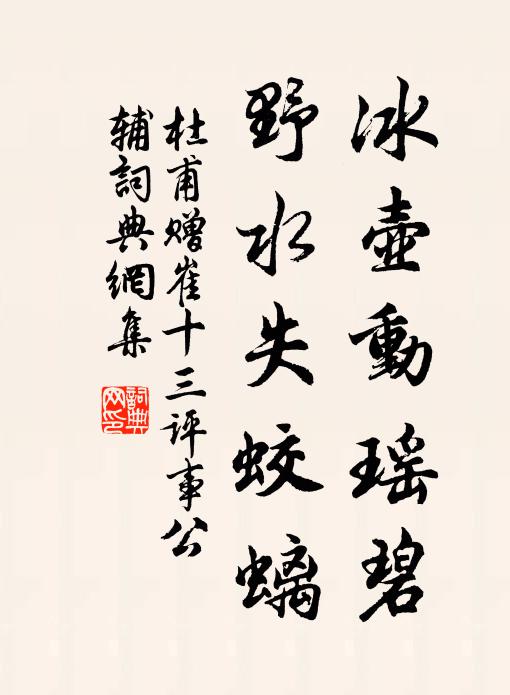 冰壺動瑶碧
野水失蛟螭
杜甫赠崔十三评事公
辅詞典網集
詞典
网印